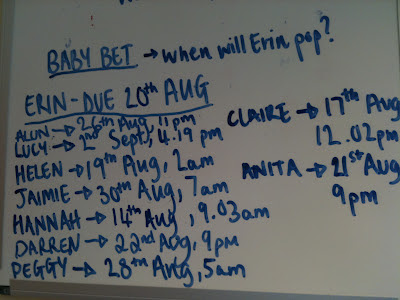 BABY BET → when will Erin pop?
ERIN - DUE 20th AUG
ALUN → 26th Aug, 11pm
LUCY → 2nd Sept, 4.19 pm
HELEN → 19th Aug, 2am
JAIMIE → 30th Aug, 7am
HANNAH → 14th Aug, 9.03am
DARREN → 22nd Aug, 9pm
PEGGY → 28th Aug, 5am
CLAIRE → 17th Aug
12.02pm
ANITA → 21st Aug
9pm